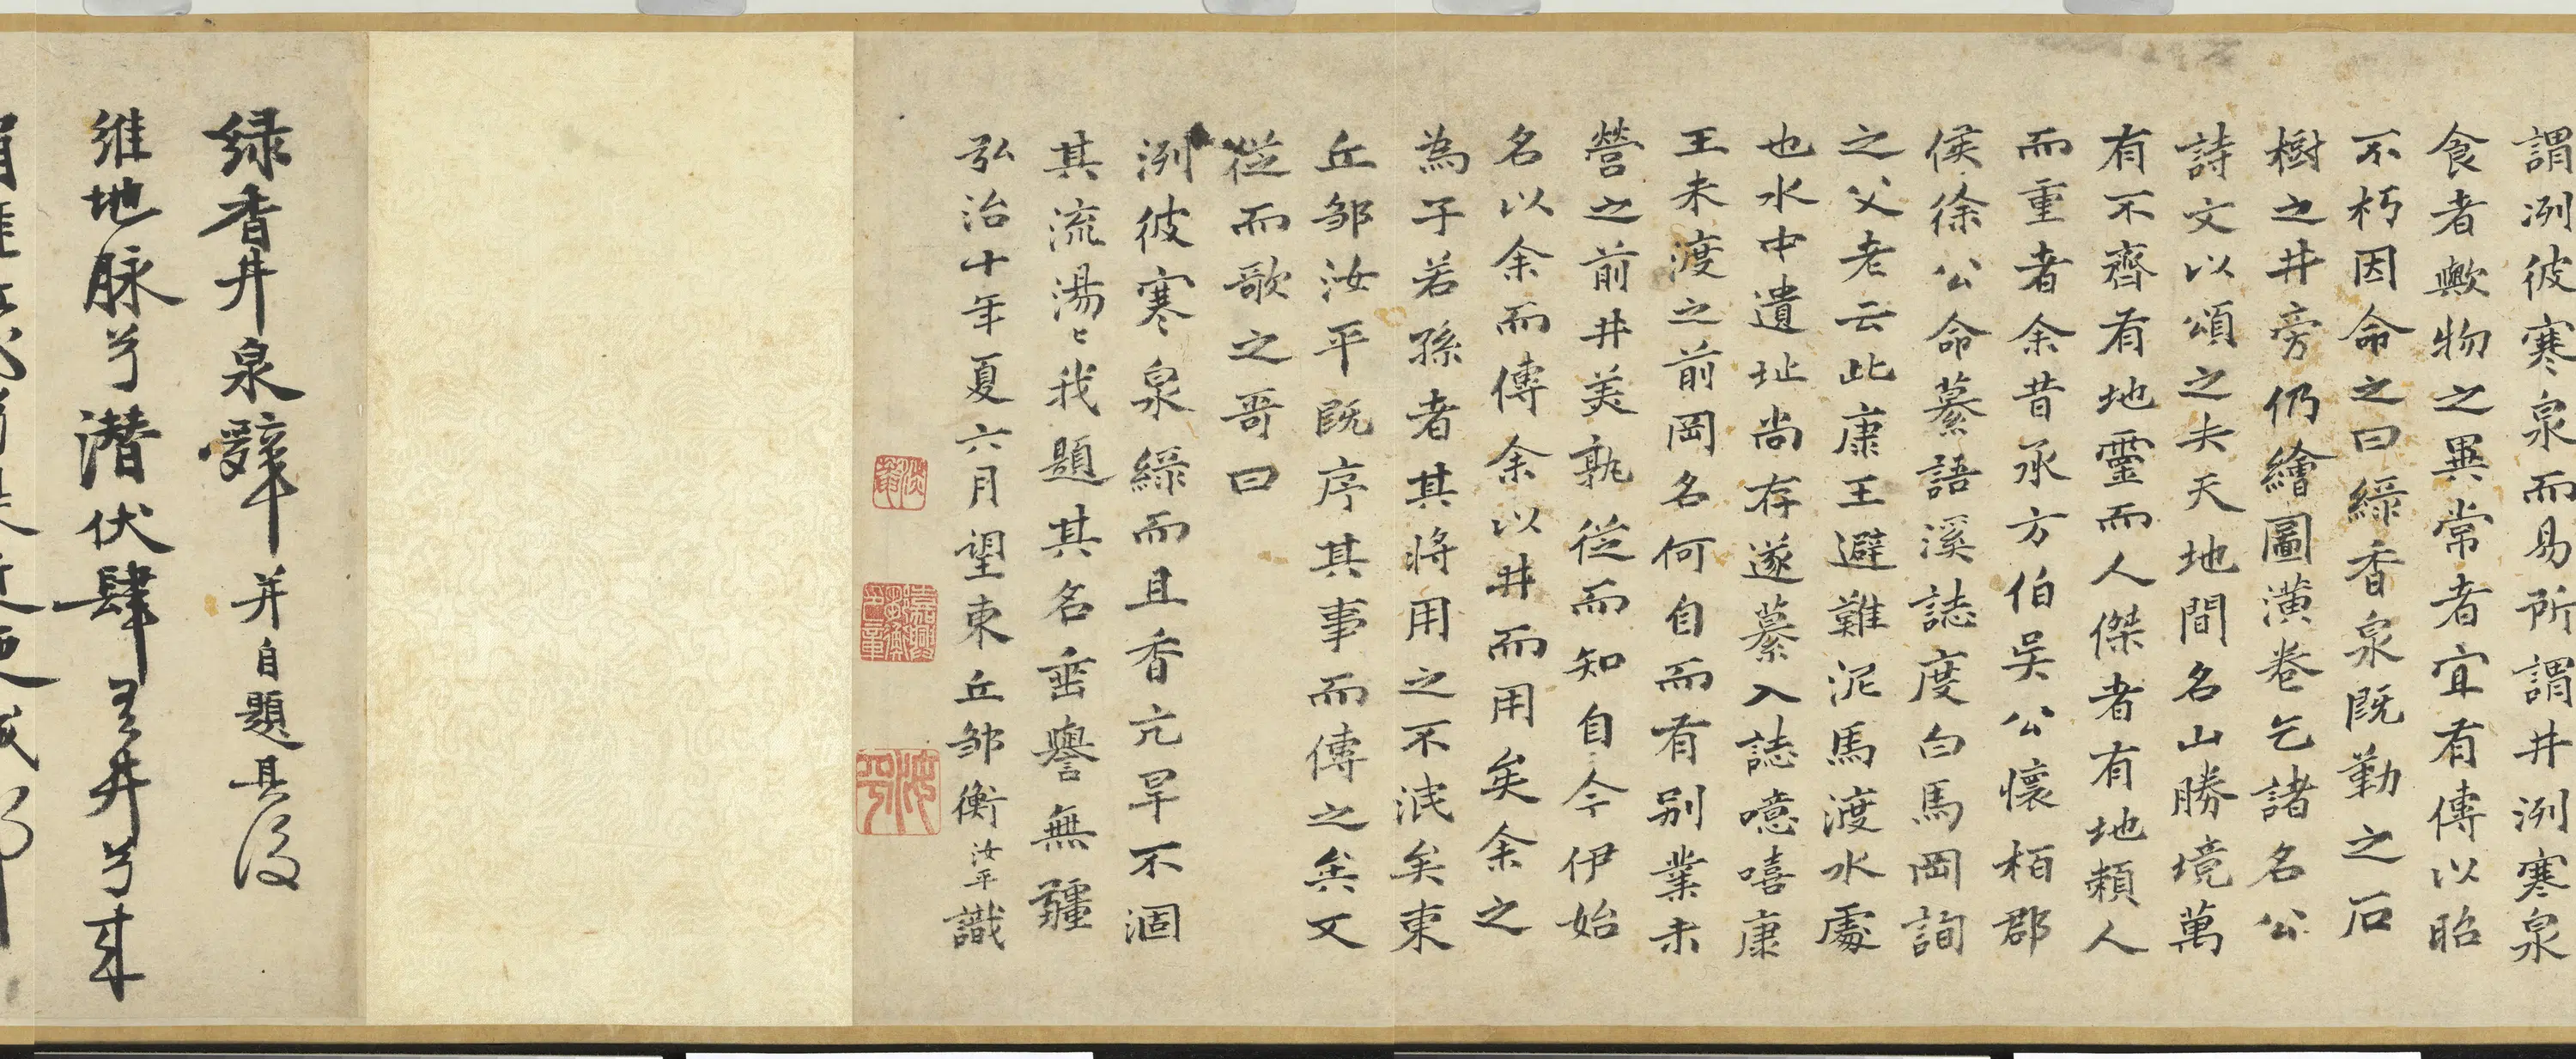 謂冽彼寒泉而易所謂井冽寒泉
食者歟物之異常者宜有傳以昭
不朽因命之曰綠香泉既勒之石
樹之井旁仍繪圖潢卷乞諸名公
詩文以頌之夫天地間名山勝境萬
有不齊有地靈而人傑者有地賴人
而重者余昔承方伯吳公懷栢郡
侯徐公命纂語溪誌度白馬岡詢
之父老云此康王避難泥馬渡水處
也水中遺址尚存遂纂入誌噫嘻康
王未渡之前岡名何自而有別業未
營之前井美孰從而知自今伊始
名以余而傳余以井而用矣余之
為子若孫者其將用之不洩矣東
丘邹汝平既序其事而傳之矣又
從而歌之哥曰
冽彼寒泉綠而且香亢旱不涸
其流湯〻我題其名垂譽無疆
弘治十年夏六月望東丘邹衡汝平識
绿香井泉辭并自題其後
維地脉兮潛伏肆井兮來